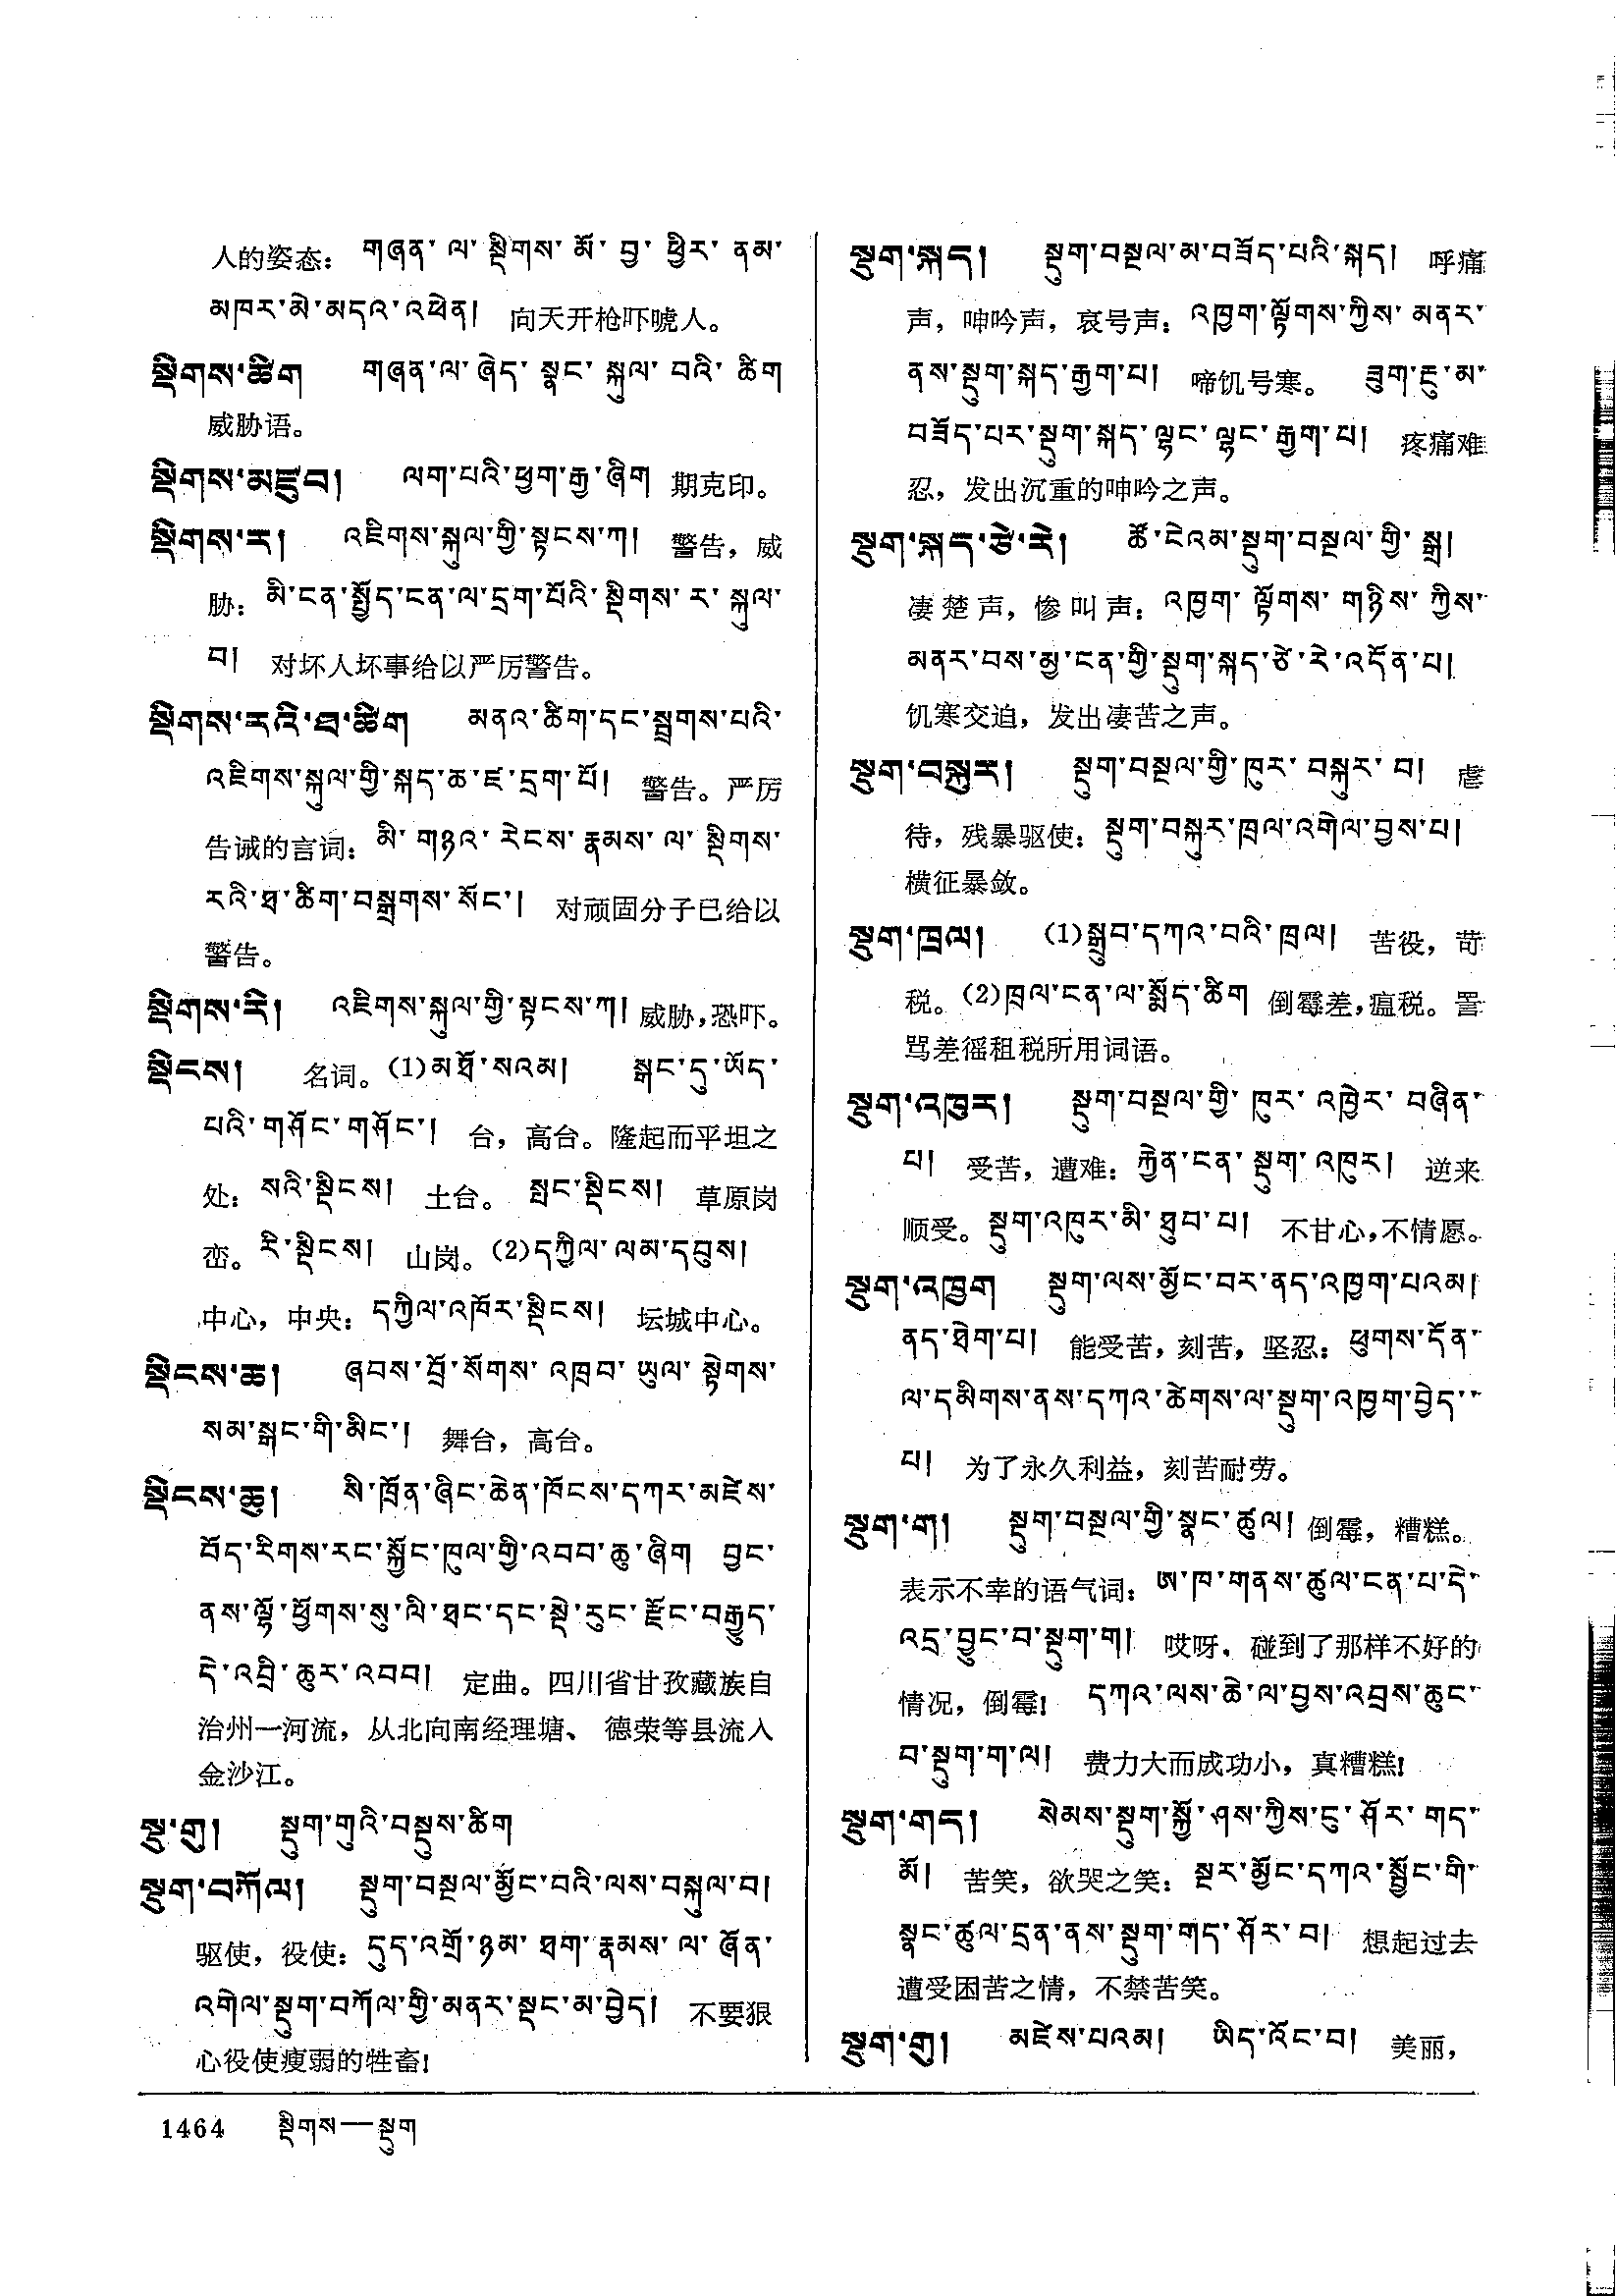 人的姿态： གཞན་ ལ་ སྡིགས་ མོ་ བྱ་ ཕྱིར་ ནམ་
མཁར་མེ་མདའ་འཕེན། 向天开枪吓唬人。
སྡིགས་ཚིག གཞན་ལ་ཞེད་ སྣང་ སྐུལ་ བའི་ ཚིག
威胁语。
སྡིགས་མཛུབ། ལག་པའི་ཕྱག་རྒྱ་ཞིག 期克印。
སྡིགས་ར། འཇིགས་སྐུལ་གྱི་སྟངས་ཀ། 警告，威
胁：མི་ངན་སྤྱོད་ངན་ལ་དྲག་པོའི་ སྡིགས་ ར་ སྐུལ་
བ། 对坏人坏事给以严厉警告。
སྡིགས་རའི་ཐ་ཚིག མནའ་ཚིག་དང་སྦྲགས་པའི་
འཇིགས་སྐུལ་གྱི་སྐད་ཆ་ཇ་དྲག་པོ། 警告。严厉
告诫的言词：མི་ གཉའ་ རེངས་ རྣམས་ ལ་ སྡིགས་
རའི་ཐ་ཚིག་བསྒྲགས་ སོང་། 对顽固分子已给以
警告。
སྡིགས་རེ། འཇིགས་སྐུལ་གྱི་སྟངས་ཀ། 威胁，恐吓。
སྡིངས། 名词。(1)མཐོ་སའམ། སྒང་དུ་ཡོད་
པའི་གཤོང་གཤོང་། 台，高台。隆起而平坦之
处：སའི་སྡིངས། 土台。 སྤང་སྡིངས། 草原岗
峦。རི་སྡིངས། 山岗。(2)དཀྱིལ་ལམ་དབུས།
中心，中央：དཀྱིལ་འཁོར་སྡིངས། 坛城中心。
སྡིངས་ཆ། ཞབས་བྲོ་སོགས་ འཁྲབ་ ཡུལ་ སྟེགས་
སམ་སྒང་གི་མིང་། 舞台，高台。
སྡིངས་ཆུ། སི་ཁྲོན་ཞིང་ཆེན་ཁོངས་དཀར་མཛེས་
བོད་རིགས་རང་སྐྱོང་ཁུལ་གྱི་འབབ་ཆུ་ཞིག བྱང་
ནས་ལྷོ་ཕྱོགས་སུ་ལི་ཐང་དང་སྡེ་རུང་རྫོང་བརྒྱུད་
དེ་འབྲི་ཆུར་འབབ། 定曲。四川省甘孜藏族自
治州一河流，从北向南经理塘、 德荣等县流入
金沙江。
སྡུ་གུ། སྡུག་གུའི་བསྡུས་ཚིག
སྡུག་བཀོལ། སྡུག་བསྔལ་མྱོང་བའི་ལས་བསྐུལ་བ།
驱使，役使：དུད་འགྲོ་ཉམ་ ཐག་རྣམས་ ལ་ ཞོན་
འགེལ་སྡུག་བཀོལ་གྱི་མནར་སྡང་མ་བྱེད། 不要狠
心役使瘦弱的牲畜!
སྡུག་སྐད། སྡུག་བསྔལ་མ་བཟོད་པའི་སྐད། 呼痛
声，呻吟声，哀号声：འཁྱག་ལྟོགས་ཀྱིས་ མནར་
ནས་སྡུག་སྐད་རྒྱག་པ། 啼饥号寒。 ཟུག་རྔུ་མ་
བཟོད་པར་སྡུག་སྐད་ལྷང་ལྷང་རྒྱག་པ། 疼痛难
忍，发出沉重的呻吟之声。
སྡུག་སྐད་ཙེ་རེ། ཚོ་ངེའམ་སྡུག་བསྔལ་གྱི་ སྒྲ།
凄楚声，惨叫声：འཁྱག་ ལྟོགས་ གཉིས་ ཀྱིས་
མནར་བས་མྱ་ངན་གྱི་སྡུག་སྐད་ཙེ་རེ་འདོན་པ།
饥寒交迫，发出凄苦之声。
སྡུག་བསྐུར། སྡུག་བསྔལ་གྱི་ཁུར་ བསྐུར་ བ། 虐
待，残暴驱使：སྡུག་བསྐུར་ཁྲལ་འགེལ་བྱས་པ།
横征暴敛。
སྡུག་ཁྲལ། (1)སྒྲུབ་དཀའ་བའི་ཁྲལ། 苦役，苛
税。(2)ཁྲལ་ངན་ལ་སྨོད་ཚིག 倒霉差，瘟税。詈
骂差徭租税所用词语。
སྡུག་འཁུར། སྡུག་བསྔལ་གྱི་ ཁུར་ འཁྱེར་ བཞིན་
པ། 受苦，遭难：རྐྱེན་ངན་ སྡུག་ འཁུར། 逆来
顺受。སྡུག་འཁུར་མི་ཐུབ་པ། 不甘心，不情愿。
སྡུག་འཁྱག སྡུག་ལས་མྱོང་བར་ནད་འཁྱག་པའམ།
ནད་ཐེག་པ། 能受苦，刻苦，坚忍：ཕུགས་དོན་
ལ་དམིགས་ནས་དཀའ་ཚེགས་ལ་སྡུག་འཁྱག་བྱེད་
པ། 为了永久利益，刻苦耐劳。
སྡུག་ག། སྡུག་བསྔལ་གྱི་སྣང་ཚུལ། 倒霉，糟糕。
表示不幸的语气词：ཨ་ཁ་གནས་ཚུལ་ངན་པ་དེ་
འདྲ་བྱུང་བ་སྡུག་ག། 哎呀，碰到了那样不好的
情况，倒霉! དཀའ་ལས་ཆེ་ལ་བྱས་འབྲས་ཆུང་
བ་སྡུག་ག་ལ། 费力大而成功小，真糟糕!
སྡུག་གད། སེམས་སྡུག་སྐྱོ་ཤས་ཀྱིས་ངུ་ ཤོར་ གད་
མོ། 苦笑，欲哭之笑：སྔར་མྱོང་དཀའ་སྤྱོང་གི་
སྣང་ཚུལ་དྲན་ནས་སྡུག་གད་ཤོར་བ། 想起过去
遭受困苦之情，不禁苦笑。
སྡུག་གུ། མཛེས་པའམ། ཡིད་འོང་བ། 美丽，
1464 སྡིགས—སྡུག